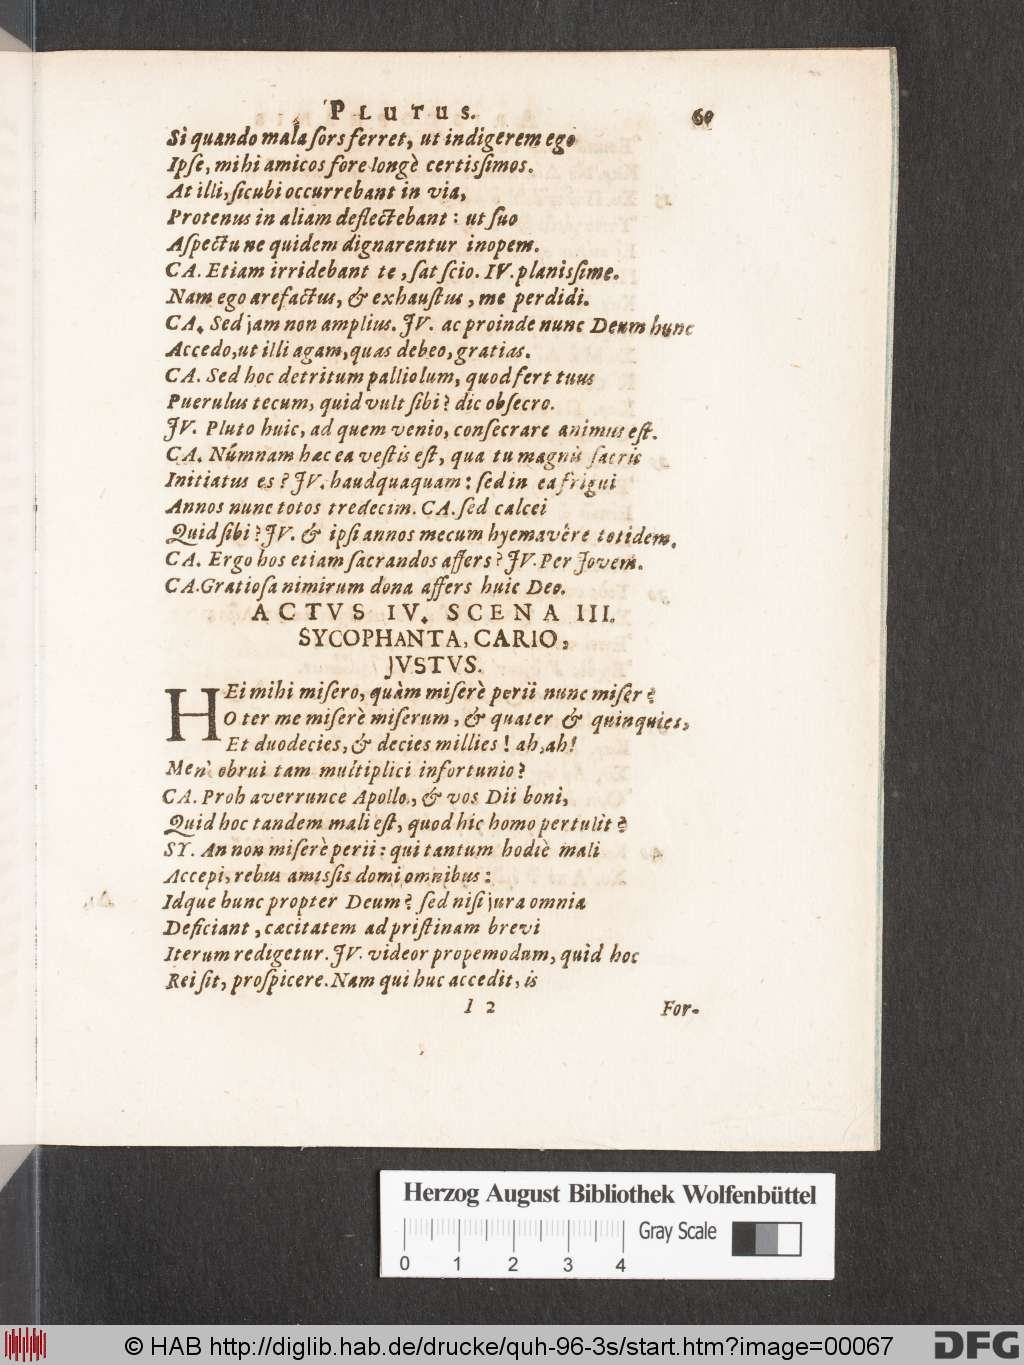 PLUTUS. 60
Si quando mala sors ferret, ut indigerem ego
Ipse, mihi amicos fore longè certissimos.
At illi, sicubi occurrebant in via,
Protenus in aliam deflectebant: ut suo
Aspectu ne quidem dignarentur inopem.
CA. Etiam irridebant te, sat scio. IV. planissime.
Nam ego arefactus, & exhaustus, me perdidi.
CA. Sed jam non amplius. JV. ac proinde nunc Deum hunc
Accedo, ut illi agam, quas debeo, gratias.
CA. Sed hoc detritum palliolum, quod fert tuus
Puerulus tecum, quid vult sibi? dic obsecro.
JV. Pluto huic, ad quem venio, consecrare animus est.
CA. Númnam hæc ea vestis est, qua tu magnis sacris
Initiatus es? JV. haudquaquam: sed in ea frigui
Annos nunc totos tredecim. CA. sed calcei
Quid sibi? JV. & ipsi annos mecum hyemavêre totidem.
CA. Ergo hos etiam sacrandos affers? JV. Per Jovem.
CA. Gratiosa nimirum dona affers huic Deo.
ACTVS IV. SCENA III.
SYCOPHANTA, CARIO,
JVSTVS.
HEi mihi misero, quàm miserè perii nunc miser?
O ter me miserè miserum, & quater & quinquies,
Et duodecies, & decies millies! ah, ah!
Men' obrui tam multiplici infortunio?
CA. Proh averrunce Apollo, & vos Dii boni,
Quid hoc tandem mali est, quod hic homo pertulit?
SY. An non miserè perii: qui tantum hodiè mali
Accepi, rebus amissis domi omnibus:
Idque hunc propter Deum? sed nisi jura omnia
Deficiant, cæcitatem ad pristinam brevi
Iterum redigetur. JV. videor propemodum, quid hoc
Rei sit, prospicere. Nam qui huc accedit, is
I 2 For-
Herzog August Bibliothek Wolfenbüttel
Gray Scale
0 1 2 3 4
© HAB http://diglib.hab.de/drucke/quh-96-3s/start.htm?image=00067
DFG